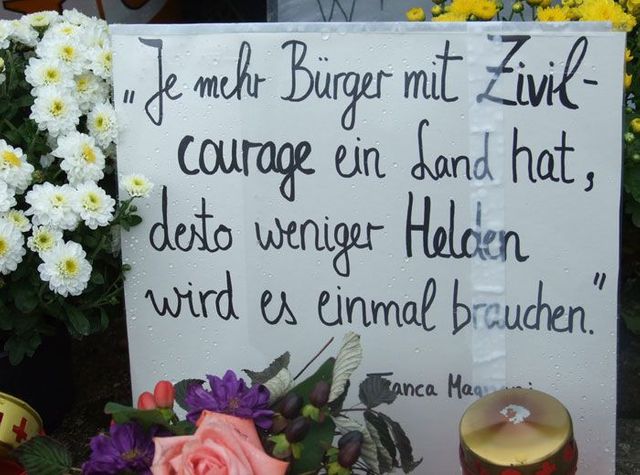 „Je mehr Bürger mit Zivil-
courage ein Land hat,
desto weniger Helden
wird es einmal brauchen."